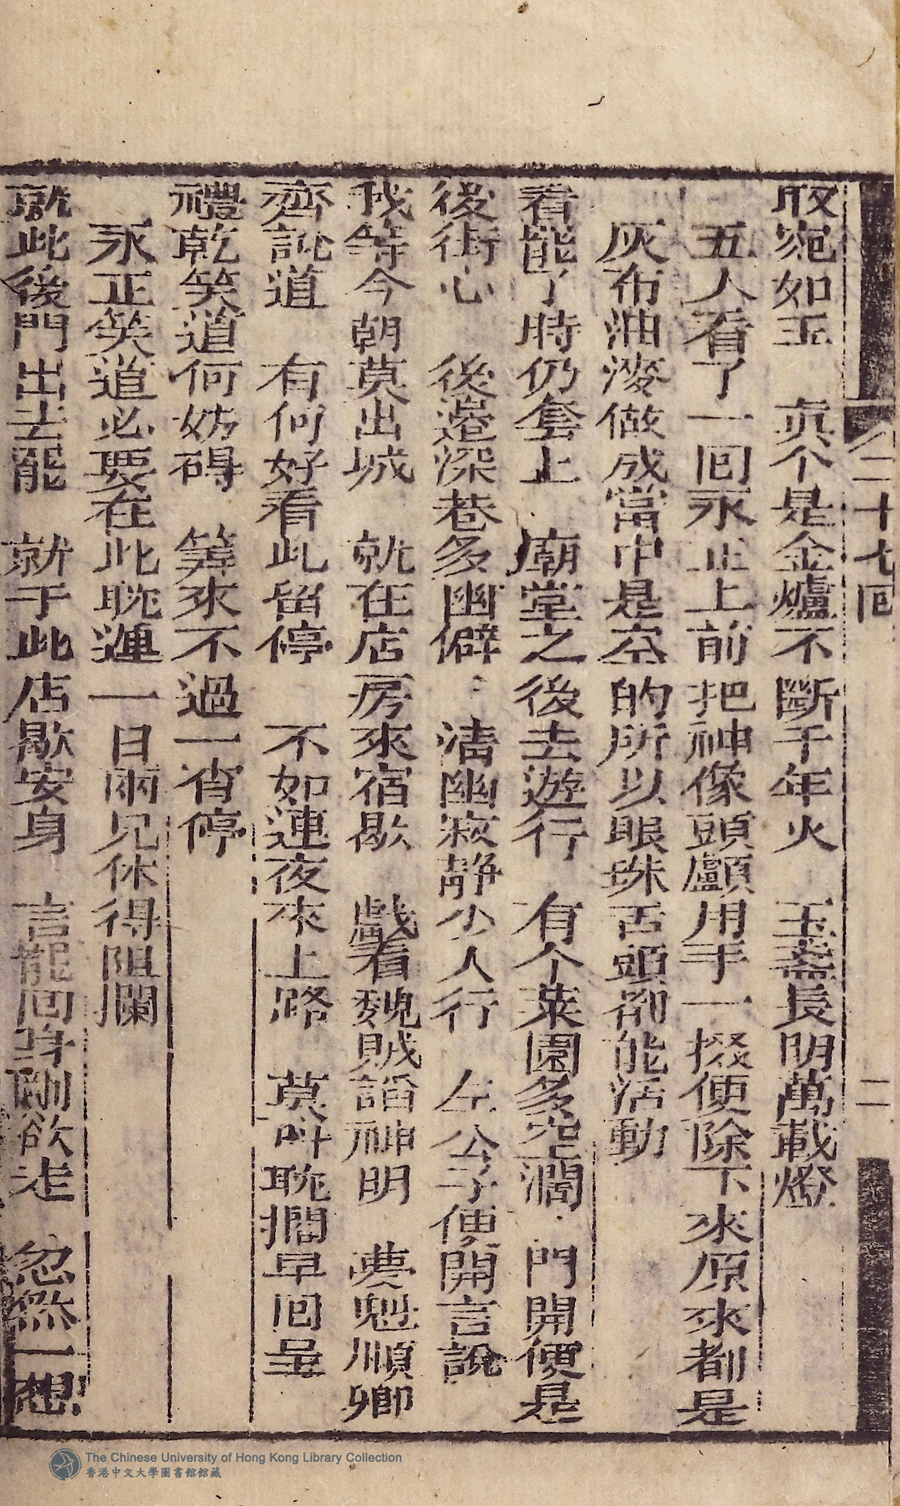 二十七回
二
取宛如玉　真个是金爐不斷千年火　玉盞長明萬載燈
五人看了一囘永正上前把神像頭顱用手一掇便除下來原來都是
灰布油漆做成當中是空的所以眼珠舌頭都能活動
看罷了時仍套上　廟堂之後去遊行　有个菜園多空濶　門開便是
後街心　後邉深巷多幽僻　清幽寂静少人行　左公子便開言說
我等今朝莫出城　就在店房來宿歇　戲看魏賊謟神明　夢魁順卿
齊說道　有何好看此留停　不如連夜來上路　莫呌耽擱早囘呈
禮乾笑道何妨碍　筭來不過一宵停
永正笑道必要在此耽遲一日兩兄休得阻攔
就此後門出去罷　就于此店歇安身　言罷回身剛欲走　忽然一想
The Chinese University of Hong Kong Library Collection
香港中文大學圖書館館藏